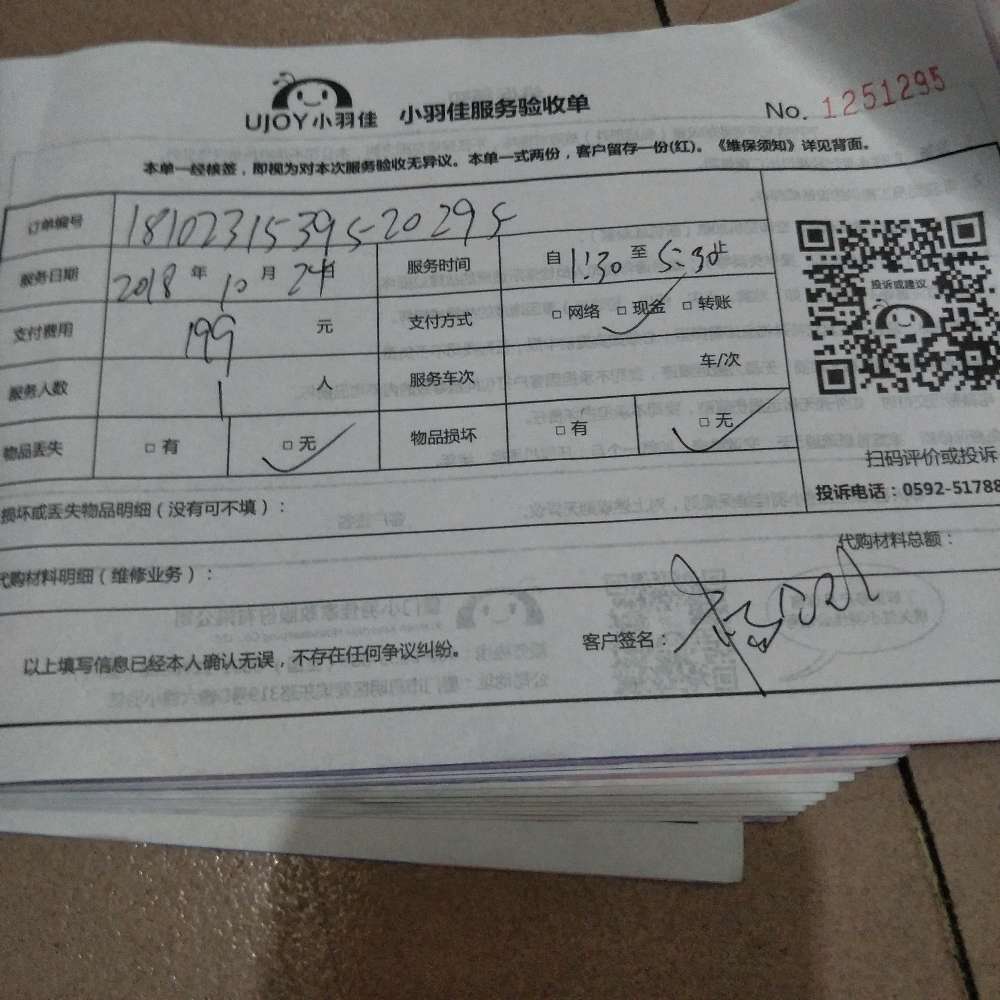 UJOY小羽佳 小羽佳服务验收单 No. 1251295
本单一经核签，即视为对本次服务验收无异议。本单一式两份，客户留存一份(红)。《维保须知》详见背面。
订单编号 18102315395-20295
服务日期 2018 年 10 月 24 日 服务时间 自 1:30 至 5:30 止
支付费用 199 元 支付方式 □ 网络 □ 现金 □ 转账
服务人数 1 人 服务车次 车/次
物品丢失 □ 有 □ 无 物品损坏 □ 有 □ 无
投诉或建议
扫码评价或投诉
投诉电话：0592-51788
损坏或丢失物品明细（没有可不填）：
代购材料明细（维修业务）： 代购材料总额：
以上填写信息已经本人确认无误，不存在任何争议纠纷。 客户签名：